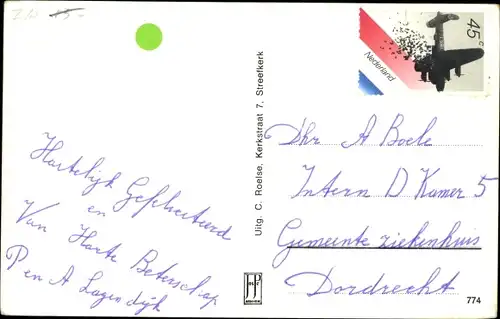 45 c
Nederland
Hartelijk Gefeliciteerd
en
Van Harte Beterschap
P en A Lagendijk
Uitg. C. Roelse, Kerkstraat 7, Streefkerk
Dhr A Boele
Intern D Kamer 5
Gemeente ziekenhuis
Dordrecht
774